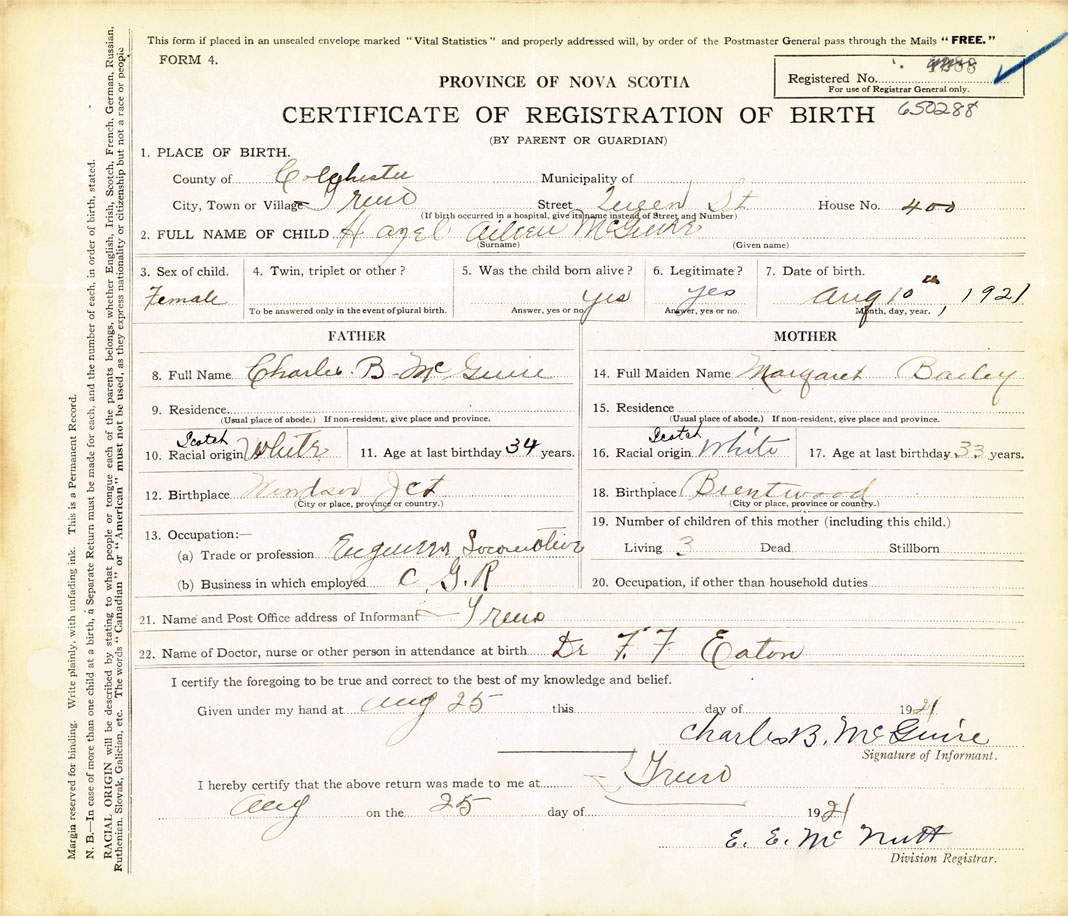 This form if placed in an unsealed envelope marked "Vital Statistics" and properly addressed will, by order of the Postmaster General pass through the Mails "FREE."
FORM 4.
Registered No.
For use of Registrar General only.
PROVINCE OF NOVA SCOTIA
650288
CERTIFICATE OF REGISTRATION OF BIRTH
(BY PARENT OR GUARDIAN)
1. PLACE OF BIRTH.
County of Colchester Municipality of
City, Town or Village Truro Street Queen St House No. 400
(If birth occurred in a hospital, give its name instead of Street and Number)
2. FULL NAME OF CHILD Hazel Aileen McGuire
(Surname) (Given name)
3. Sex of child. 4. Twin, triplet or other? 5. Was the child born alive? 6. Legitimate? 7. Date of birth.
Female yes yes Aug 10th, 1921
To be answered only in the event of plural birth. Answer, yes or no. Answer, yes or no. Month, day, year.
FATHER MOTHER
8. Full Name Charles B McGuire 14. Full Maiden Name Margaret Bailey
9. Residence 15. Residence
(Usual place of abode.) If non-resident, give place and province. (Usual place of abode.) If non-resident, give place and province.
Scotch Scotch
10. Racial origin White 11. Age at last birthday 34 years. 16. Racial origin White 17. Age at last birthday 33 years.
12. Birthplace Windsor Jct 18. Birthplace Brentwood
(City or place, province or country.) (City or place, province or country.)
13. Occupation:— 19. Number of children of this mother (including this child.)
(a) Trade or profession Engineer Locomotive Living 3 Dead Stillborn
(b) Business in which employed C. G. R 20. Occupation, if other than household duties
21. Name and Post Office address of Informant Truro
22. Name of Doctor, nurse or other person in attendance at birth Dr F. F. Eaton
I certify the foregoing to be true and correct to the best of my knowledge and belief.
Given under my hand at Aug 25 this day of 1921
Charles B. McGuire
Signature of Informant.
I hereby certify that the above return was made to me at Truro
Aug on the 25 day of 1921
E. E. McNutt
Division Registrar.
Margin reserved for binding. Write plainly, with unfading ink. This is a Permanent Record.
N. B.—In case of more than one child at a birth, a Separate Return must be made for each, and the number of each, in order of birth, stated.
RACIAL ORIGIN will be described by stating to what people or tongue each of the parents belongs, whether English, Irish, Scotch, French, German, Russian,
Ruthenian, Slovak, Galician, etc. The words "Canadian" or "American" must not be used, as they express nationality or citizenship but not a race or people